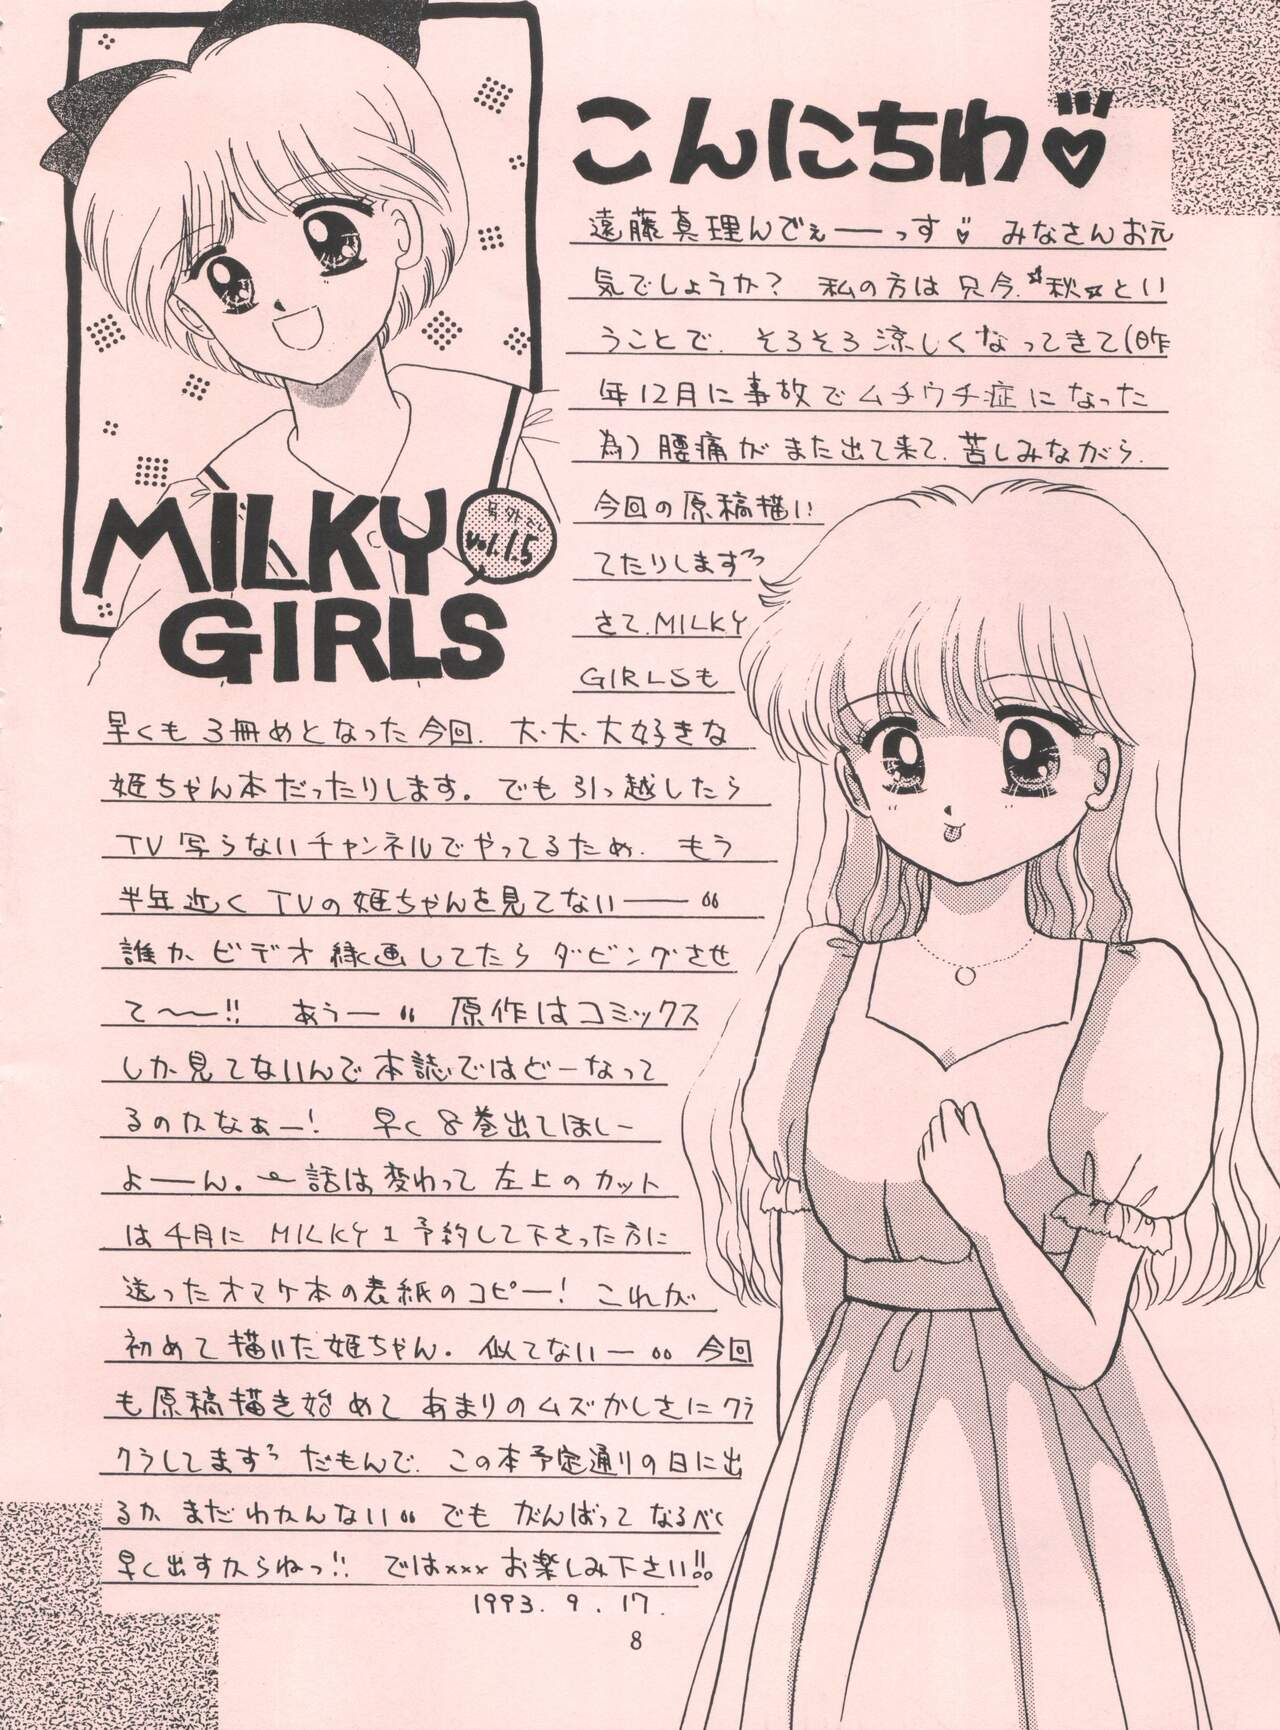 こんにちわ♡
遠藤真理んでぇーっす♡ みなさんお元
気でしょうか? 私の方は只今☆秋☆とい
うことで、そろそろ涼しくなってきて(昨
年12月に事故でムチウチ症になった
為)腰痛がまた出て来て、苦しみながら、
今回の原稿描い
てたりします
さて、MILKY
GIRLSも
早くも3冊めとなった今回、大・大・大好きな
姫ちゃん本だったりします。でも引っ越したら
TV写らないチャンネルでやってるため、もう
半年近くTVの姫ちゃんを見てないー
誰かビデオ録画してたらダビングさせ
て〜!! あうー 原作はコミックス
しか見てないんで本誌ではどーなって
るのかなぁー! 早く8巻出てほしー
よーん。 話は変わって左上のカット
は4月にMILKY1予約して下さった方に
送ったオマケ本の表紙のコピー! これが
初めて描いた姫ちゃん。似てないー 今回
も原稿描き始めてあまりのムズかしさにクラ
クラしてます だもんで、この本予定通りの日に出
るかまだわかんない でもがんばってなるべく
早く出すからねっ!! では×××お楽しみ下さい!!
1993.9.17.
MILKY
GIRLS
号外
vol.1.5
8